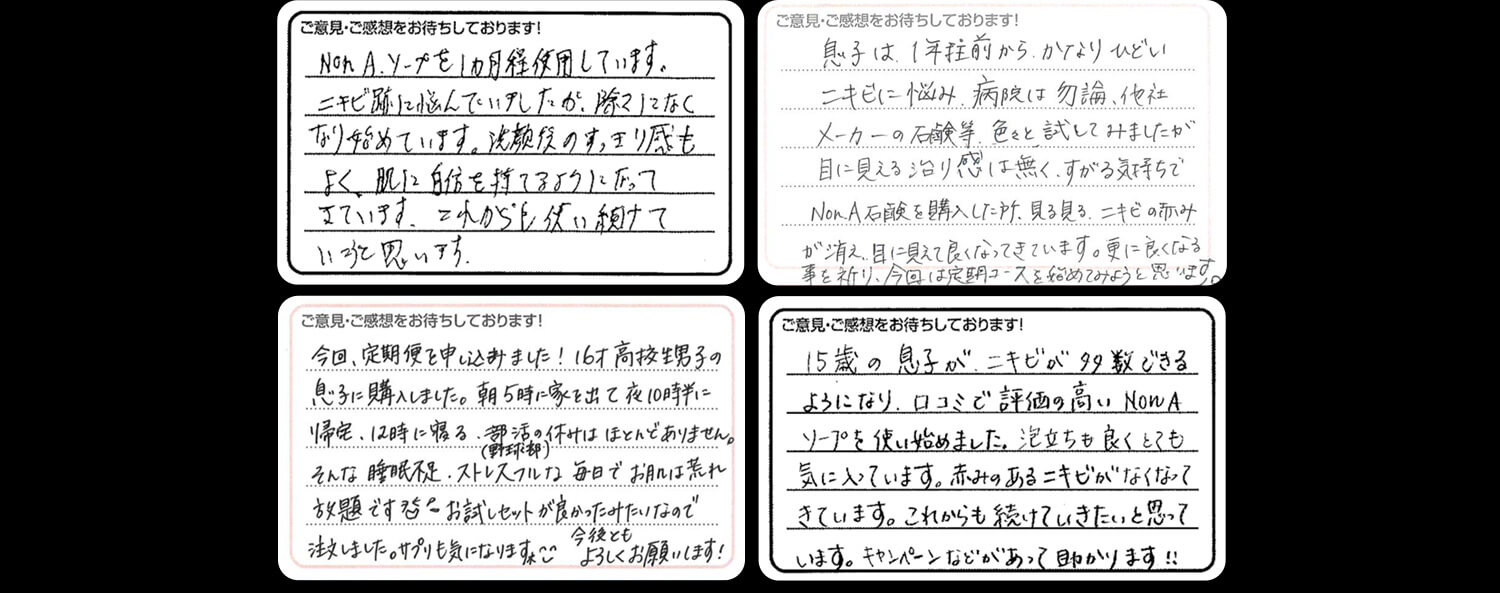 ご意見・ご感想をお待ちしております!
Non A.ソープを1カ月程使用しています。
ニキビ跡に悩んでいましたが、徐々になく
なり始めています。洗顔後のすっきり感も
よく、肌に自信を持てるようになって
きています。これからも使い続けて
いこうと思います。
ご意見・ご感想をお待ちしております!
息子は、1年程前から、かなりひどい
ニキビに悩み、病院は勿論、他社
メーカーの石鹸等、色々と試してみましたが
目に見える治り感は無く、すがる気持ちで
Non.A石鹸を購入した所、見る見る、ニキビの赤み
が消え、目に見えて良くなってきています。更に良くなる
事を祈り、今回は定期コースを始めてみようと思います。
ご意見・ご感想をお待ちしております!
今回、定期便を申し込みました!16才高校生男子の
息子に購入しました。朝5時に家を出て夜10時半に
帰宅、12時に寝る、部活の休みはほとんどありません。
(野球部)
そんな睡眠不足、ストレスフルな毎日でお肌は荒れ
放題です お試しセットが良かったみたいなので
注文しました。サプリも気になります 今後とも
よろしくお願いします!
ご意見・ご感想をお待ちしております!
15歳の息子が、ニキビが多数できる
ようになり、口コミで評価の高いNon A
ソープを使い始めました。泡立ちも良くとても
気に入っています。赤みのあるニキビがなくなって
きています。これからも続けていきたいと思って
います。キャンペーンなどがあって助かります!!